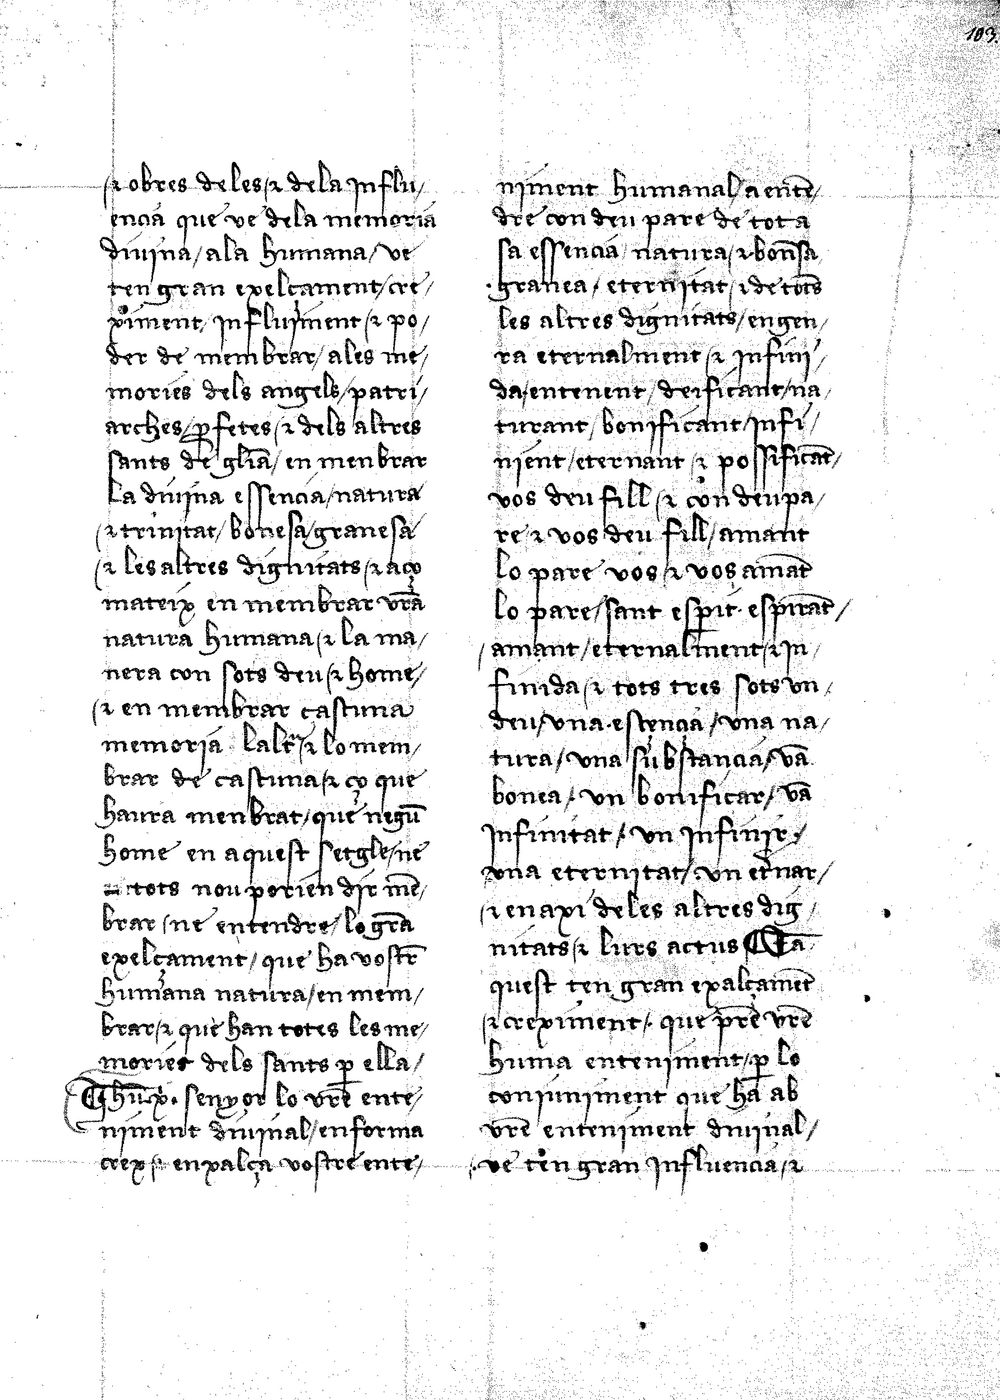 103.
⁊ obres de les ⁊ de la Influ/
encia que ve de la memoria
diuina/ ala humana/ ve
ten gran exelçament/ cre/
ximent/ Influiment ⁊ po/
der de membrar/ ales me/
mories dels angels/ patri/
arches/ ꝓfetes/ ⁊ dels altres
sants de gl̃ia/ en menbrar
La diuina essencia/ natura
⁊ trinitat/ bonesa/ granesa
⁊ les altres dignitats/ ⁊ aço
mateix en membrar vr̃a
natura humana/ ⁊ la ma/
nera con sots deu/ ⁊ home/
⁊ en membrar cascuna
memoria lalt̃r ⁊ lo mem/
brar de cascuna/ ⁊ ço que
haura menbrat/ que negũ
home en aquest setgle/ ne
tots nou porien dir mẽ/
brar/ ne entendre/ lo grã
exelçament/ que ha vostr̃
humana natura/ en mem/
brar/ ⁊ que han totes les me/
mories dels sants ꝑ ella/
Jhũ x̃. senyor lo vr̃e ente/
niment diuinal/ en forma
crex/ ⁊ enxalça vostre ente/
niment humanal/ a entẽ/
dre con deu pare de tota
sa essencia natura/ ⁊ bon̄sa
granea/ eternitat/ ⁊ de totš
les altres dignitats/ engen/
ra eternalment ⁊ Infini/
da/ entenent/ deificant/ na/
turant/ bonificant/ Infi/
nient/ eternant ⁊ possificãt/
vos deu fill/ ⁊ con deu pa/
re ⁊ vos deu fill/ amant
lo pare vos/ ⁊ vos amãt
lo pare/ sant esꝑit. espirãt/
amant/ eternalment/ ⁊ In/
finida/ ⁊ tots tres sots vn/
deu/ vna essencia/ vna na/
tura/ vna substancia/ vã
bonea/ vn bonificar/ vã
Infinitat/ vn Infinir/
vna eternitat/ vn et̃nar/
⁊ en axi de les altres dig/
nitats/ ⁊ lurs actus ¶ Ea
quest ten gran exalçamẽt
⁊ creximent/ que pr̃e vr̃e
huma enteniment/ ꝑ lo
coniuniment que ha ab
vr̃e enteniment diuinal/
ve ten gran Influencia/ ⁊